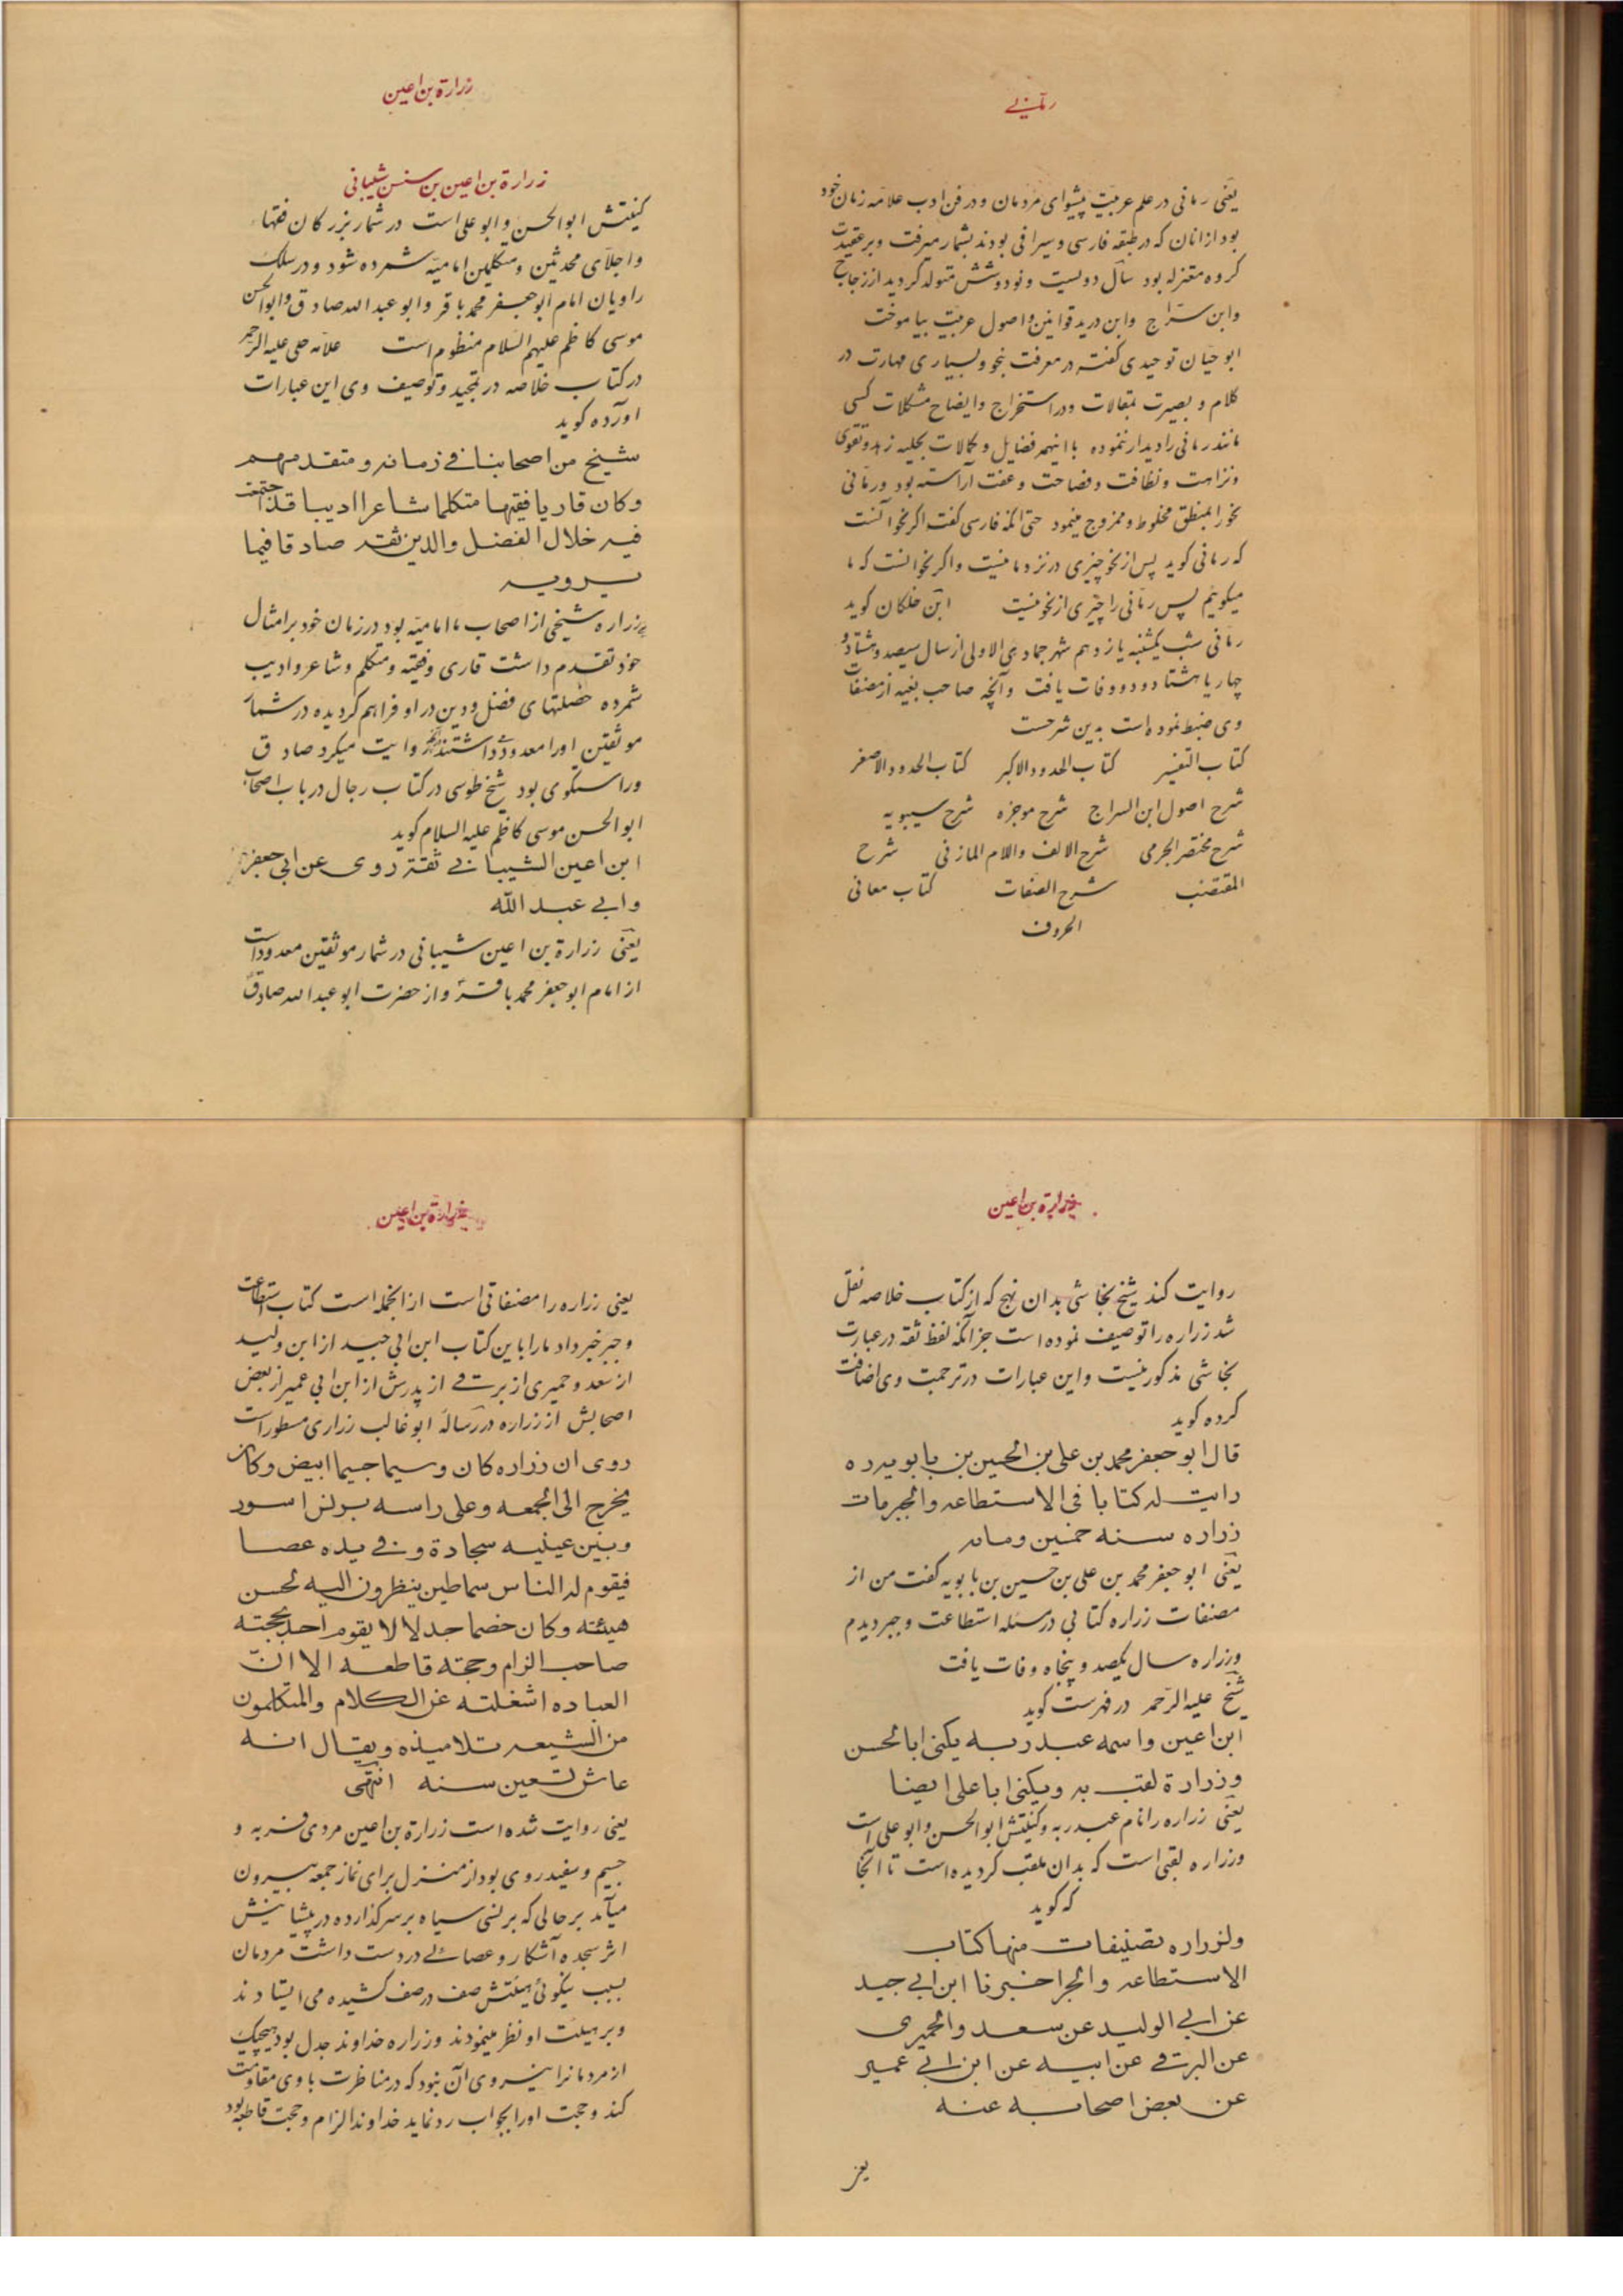 رمانی
یعنی رمانی در علم عربیت پیشوای مردمان و در فن ادب علامه زمان خود
بود از انان که در طبقه فارسی و سیرافی بودند بشمار میرفت و بر عقیدت
کروه معتزله بود سال دویست و نود و شش متولد کردید از زجاج
وابن سراج وابن درید قوانین و اصول عربیت بیاموخت
ابو حیان توحیدی کفته در معرفت نحو و بسیاری مهارت در
کلام و بصیرت بمقالات و در استخراج و ایضاح مشکلات کسی
مانند رمانی را دیدار ننموده با اینهمه فضایل و کمالات بحلیه زهد و تقوی
ونزاهت و نظافت و فصاحت و عفت آراسته بود ورمانی
نحو را بمنطق مخلوط و ممزوج مینمود حتی انکه فارسی کفت اکر نحو آنست
که رمانی کوید پس از نحو چیزی در نزد ما نیست و اکر نحو انست که ما
میکوئیم پس رمانی را چیزی از نحو نیست ابن خلکان کوید
رمانی شب یکشنبه یازدهم شهر جمادی الاولی از سال سیصد و هشتاد و
چهار یا هشتاد و دو وفات یافت و آنچه صاحب بغیه از مصنفات
وی ضبط نموده است بدین شرحست
کتاب التفسیر کتاب الحدود الاکبر کتاب الحدود الاصغر
شرح اصول ابن السراج شرح موجزه شرح سیبویه
شرح مختصر الجرمی شرح الالف واللام المازنی شرح
المقتضب شرح الصفات کتاب معانی
الحروف
زرارة بن اعین
زرارة بن اعین بن سنسن شیبانی
کنیتش ابو الحسن و ابو علی است در شمار بزرکان فقهاء
واجلای محدثین و متکلمین امامیه شمرده شود و در سلک
راویان امام ابو جعفر محمد باقر و ابو عبد الله صادق و ابو الحسن
موسی کاظم علیهم السلام منظوم است علامه حلی علیه الرحمه
در کتاب خلاصه در تمجید و توصیف وی این عبارات
اورده کوید
شیخ من اصحابنا فی زمانه و متقدمهم
وکان قاریا فقیها متکلما شاعرا ادیبا قد اجتمعت
فیه خلال الفضل والدین ثقة صادقا فیما
یرویه
زراره شیخی از اصحاب ما امامیه بود در زمان خود بر امثال
خود تقدم داشت قاری و فقیه و متکلم و شاعر و ادیب
شمرده خصلتهای فضل و دین در او فراهم کردیده در شمار
موثقین اورا معدود داشتند روایت میکرد صادق
وراستکوی بود شیخ طوسی در کتاب رجال در باب اصحاب
ابو الحسن موسی کاظم علیه السلام کوید
ابن اعین الشیبانی ثقة روی عن ابی جعفر
وابی عبد الله
یعنی زرارة بن اعین شیبانی در شمار موثقین معدود است
از امام ابو جعفر محمد باقر و از حضرت ابو عبد الله صادق
زرارة بن اعین
روایت کند شیخ نجاشی بدان نهج که از کتاب خلاصه نقل
شد زراره را توصیف نموده است جز آنکه لفظ ثقه در عبارت
نجاشی مذکور نیست و این عبارات در ترجمت وی اضافت
کرده کوید
قال ابو جعفر محمد بن علی بن الحسین بن بابویه ره
رایت له کتابا فی الاستطاعه والجبر مات
زراره سنه خمسین وماته
یعنی ابو جعفر محمد بن علی بن حسین بن بابویه کفت من از
مصنفات زراره کتابی در مسئله استطاعت و جبر دیدم
وزراره سال یکصد و پنجاه وفات یافت
شیخ علیه الرحمه در فهرست کوید
ابن اعین واسمه عبد ربه یکنی ابا الحسن
وزرارة لقب به ویکنی ابا علی ایضا
یعنی زراره را نام عبد ربه و کنیتش ابو الحسن و ابو علی است
وزراره لقبی است که بدان ملقب کردیده است تا انجا
که کوید
ولزراره تصنیفات منها کتاب
الاستطاعه والجبر اخبرنا ابن ابی جید
عن ابی الولید عن سعد والحمیری
عن البرقی عن ابیه عن ابن ابی عمیر
عن بعض اصحابه عنه
یعنی
زرارة بن اعین
یعنی زراره را مصنفاتی است از انجمله است کتاب استطاعت
و جبر خبر داد ما را باین کتاب ابن ابی جید از ابن ولید
از سعد و حمیری از برقی از پدرش از ابن ابی عمیر از بعض
اصحابش از زراره در رسالهٔ ابو غالب زراری مسطور است
روی ان زراره کان وسیما جسیما ابیض وکان
یخرج الی الجمعه وعلی راسه برنس اسود
وبین عینیه سجادة وفی یده عصا
فیقوم له الناس سماطین ینظرون الیه لحسن
هیئته وکان خصما جدلا لا یقوم احد بحجته
صاحب الزام وحجته قاطعه الا انّ
العباده اشغلته عن الکلام والمتکلمون
من الشیعه تلامیذه ویقال انه
عاش تسعین سنه انتهی
یعنی روایت شده است زرارة بن اعین مردی فربه و
جسیم و سفید روی بود از منزل برای نماز جمعه بیرون
میآمد بر حالی که برنسی سیاه بر سر کذارده در پیشانیش
اثر سجده آشکار و عصائی در دست داشت مردمان
بسبب نیکوئی هیئتش صف در صف کشیده می ایستادند
و بر هیئت او نظر مینمودند وزراره خداوند جدل بود هیچیک
از مردمانرا نیروی آن نبود که در مناظرت با وی مقاومت
کند و حجت اورا بجواب رد نماید خداوند الزام و حجت قاطعه بود